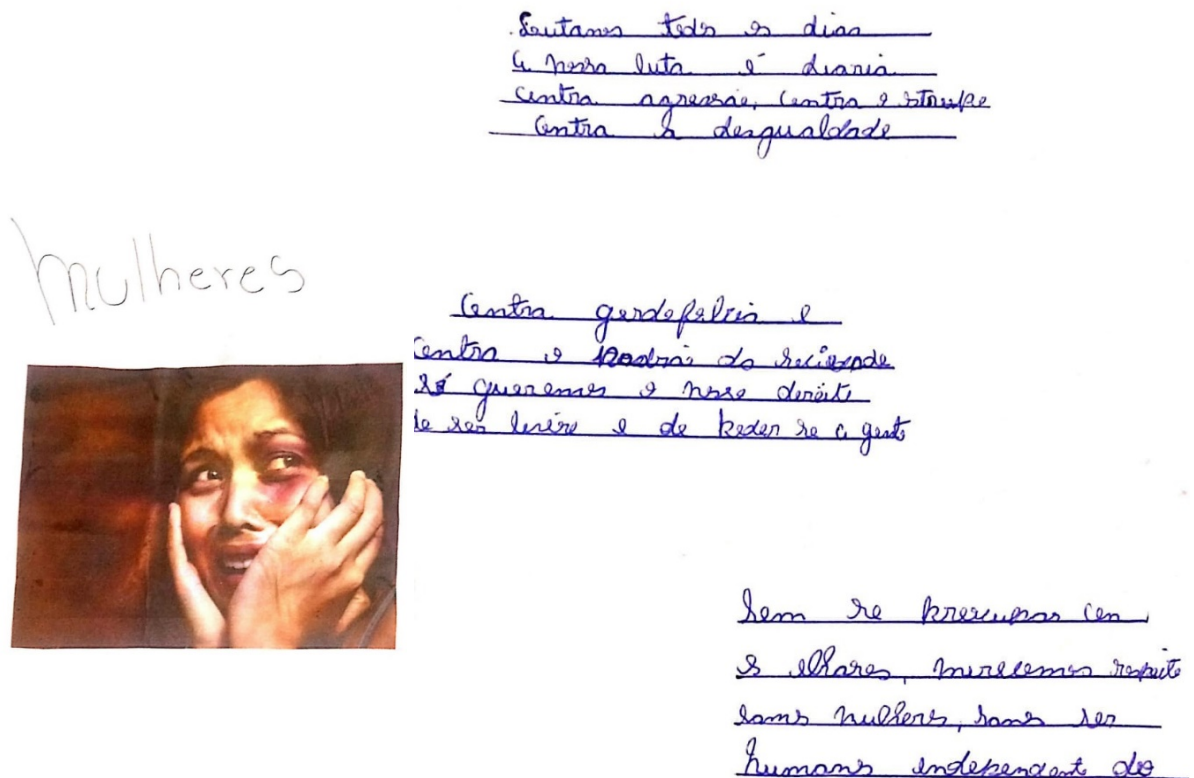 Lutamos todos os dias
a nossa luta é diaria
contra agressão, contra o strupo
contra a desgualdade
Mulheres
contra gordofobia e
contra o padrão da
só queremos o nosso direito
de ser livre e de poder se a gente
Sem se preocupar com
os olhares, merecemos respeito
somos mulheres, somos ser
humanos independent do